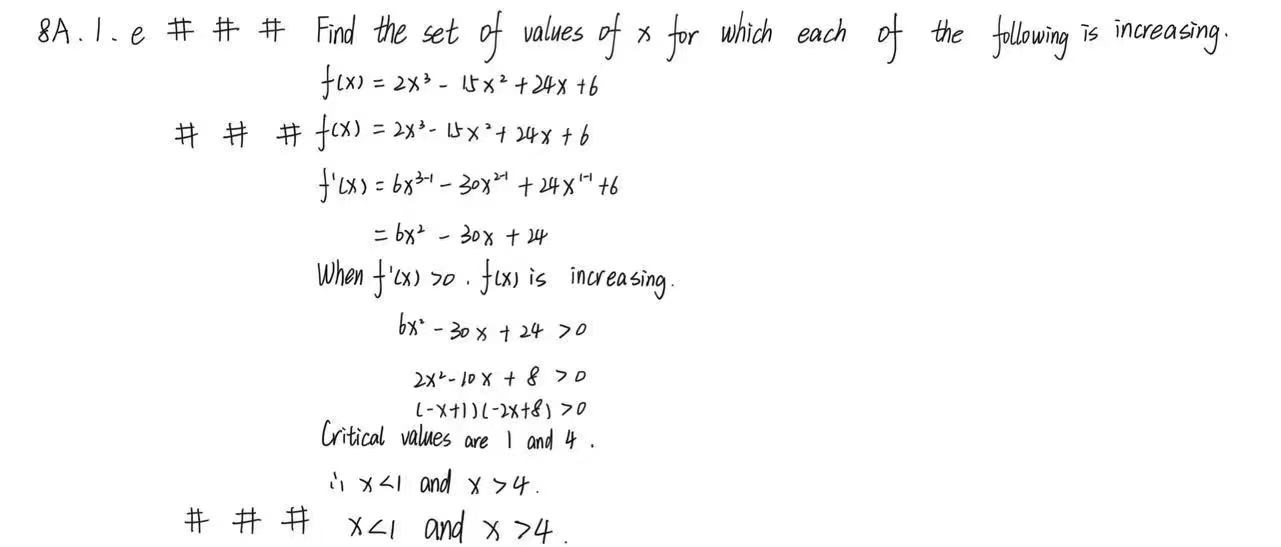 8A.1.e # # # Find the set of values of x for which each of the following is increasing.
f(x) = 2x³ - 15x² + 24x + 6
# # # f(x) = 2x³ - 15x² + 24x + 6
f'(x) = 6x³⁻¹ - 30x²⁻¹ + 24x¹⁻¹ + 6
= 6x² - 30x + 24
When f'(x) >0 . f(x) is increasing.
6x² - 30x + 24 >0
2x² - 10x + 8 >0
(-x+1)(-2x+8) >0
Critical values are 1 and 4 .
∴ x<1 and x >4 .
# # # x<1 and x >4 .